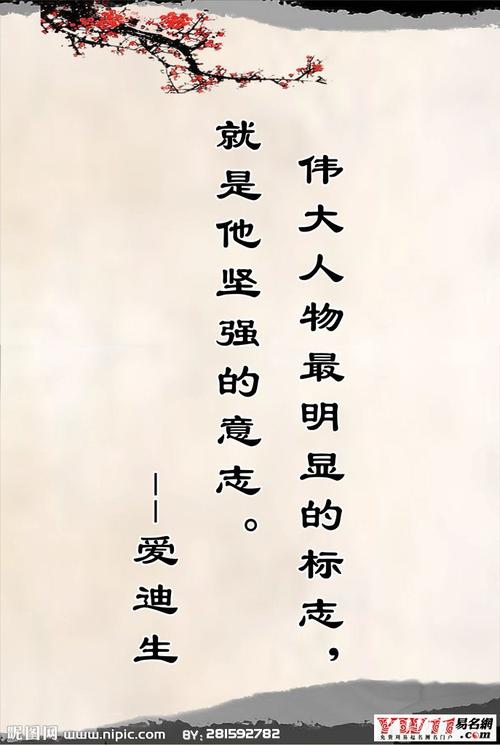 伟大人物最明显的标志，
就是他坚强的意志。
——爱迪生
昵图网 www.nipic.com BY: 281592782
YW11 易名網
免费周易起名测名门户 .com